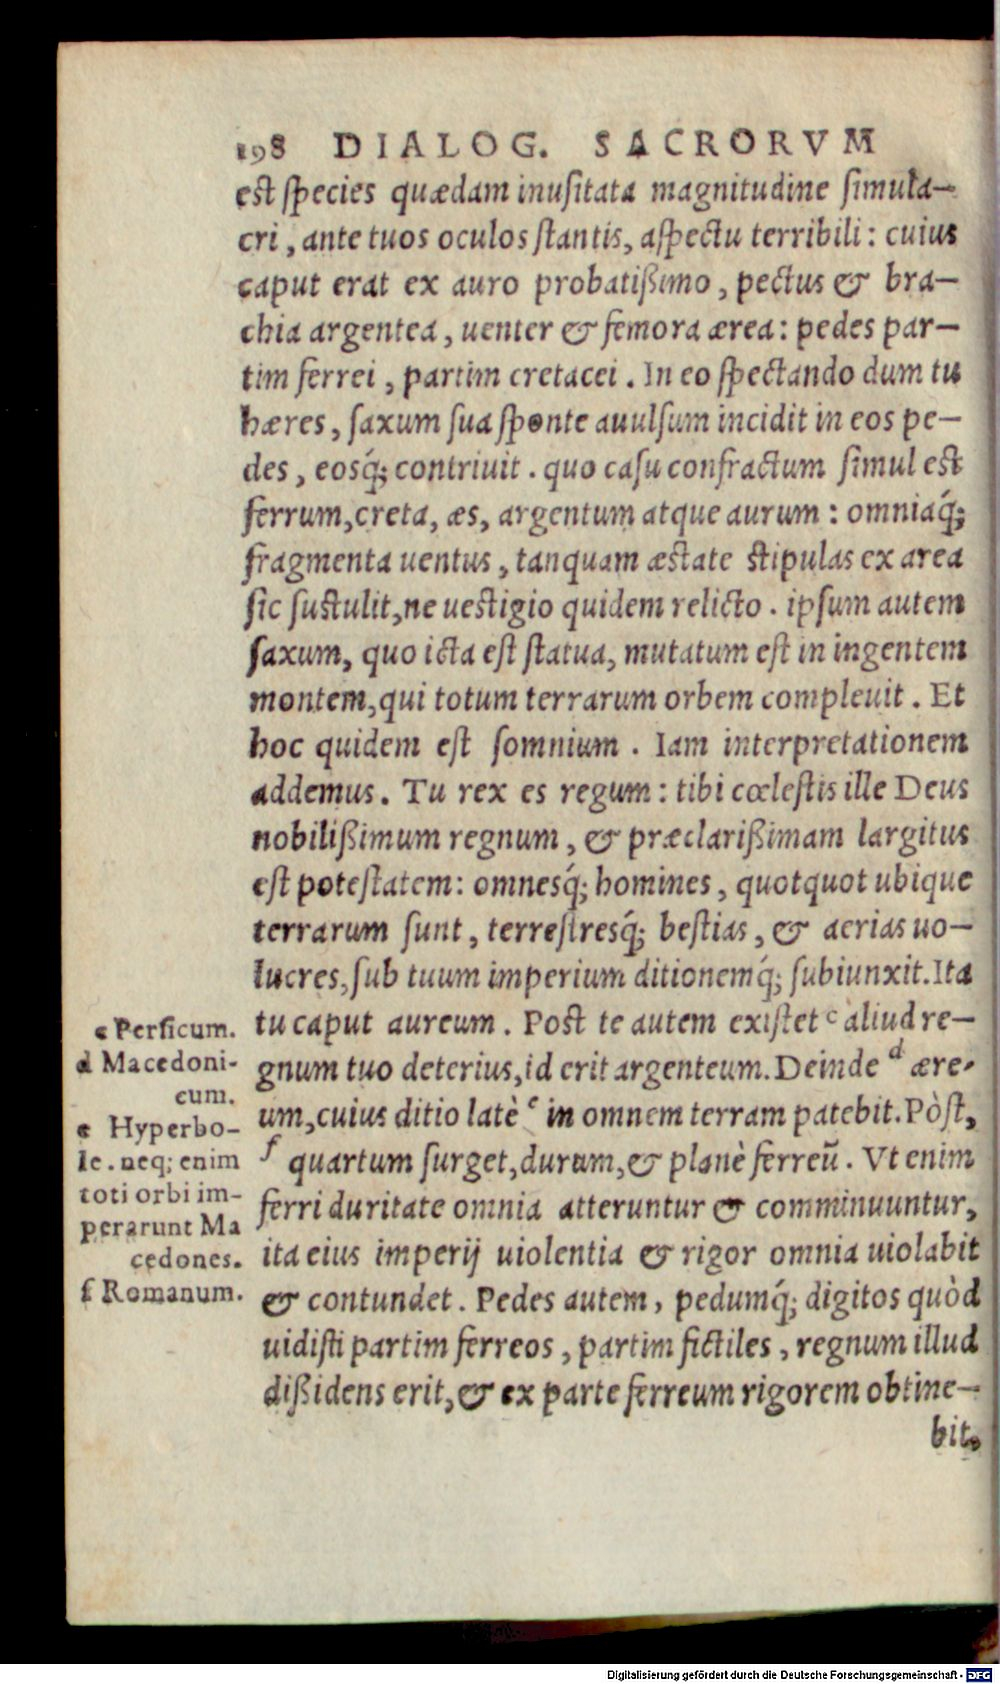 198 DIALOG. SACRORVM
est species quædam inusitata magnitudine simula-
cri, ante tuos oculos stantis, aspectu terribili: cuius
caput erat ex auro probatißimo, pectus & bra-
chia argentea, uenter & femora ærea: pedes par-
tim ferrei, partim cretacei. In eo spectando dum tu
hæres, saxum sua sponte auulsum incidit in eos pe-
des, eosq́; contriuit. quo casu confractum simul est
ferrum, creta, æs, argentum atque aurum: omniaq́;
fragmenta uentus, tanquam æstate stipulas ex area
sic sustulit, ne uestigio quidem relicto. ipsum autem
saxum, quo icta est statua, mutatum est in ingentem
montem, qui totum terrarum orbem compleuit. Et
hoc quidem est somnium. Iam interpretationem
addemus. Tu rex es regum: tibi cœlestis ille Deus
nobilißimum regnum, & præclarißimam largitus
est potestatem: omnesq́; homines, quotquot ubique
terrarum sunt, terrestresq́; bestias, & aerias uo-
lucres, sub tuum imperium ditionemq́; subiunxit. Ita
tu caput aureum. Post te autem existet c aliud re-
gnum tuo deterius, id erit argenteum. Deinde d ære-
um, cuius ditio latè e in omnem terram patebit. Pòst,
f quartum surget, durum, & planè ferreū. Vt enim
ferri duritate omnia atteruntur & comminuuntur,
ita eius imperij uiolentia & rigor omnia uiolabit
& contundet. Pedes autem, pedumq́; digitos quòd
uidisti partim ferreos, partim fictiles, regnum illud
dißidens erit, & ex parte ferreum rigorem obtine-
bit.
c Persicum.
d Macedoni-
cum.
e Hyperbo-
le. neq; enim
toti orbi im-
perarunt Ma
cedones.
f Romanum.
Digitalisierung gefördert durch die Deutsche Forschungsgemeinschaft - DFG